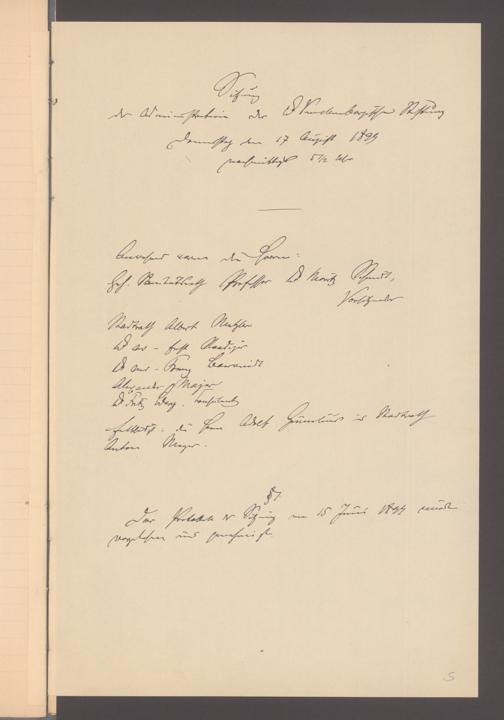 Sitzung
der Administration der Dr Senckenbergischen Stiftung
Donnerstag den 17 August 1899
nachmittags 5 1/2 Uhr
Anwesend waren die Herren:
Geh. Sanitätsrath Professor Dr Moritz Schmidt,
Vorsitzender
Stadtrath Albert Metzler
Dr med. Ernst Roediger
Dr med. Franz
Alexander Majer
Dr Fritz Berg. Consulent
fehlten: die Herren Adolf Gumelius Stadtrath
Anton Meyer.
§1
Das Protokoll der Sitzung vom 15 Juni 1899 wurde
vorgelesen und genehmigt.
5